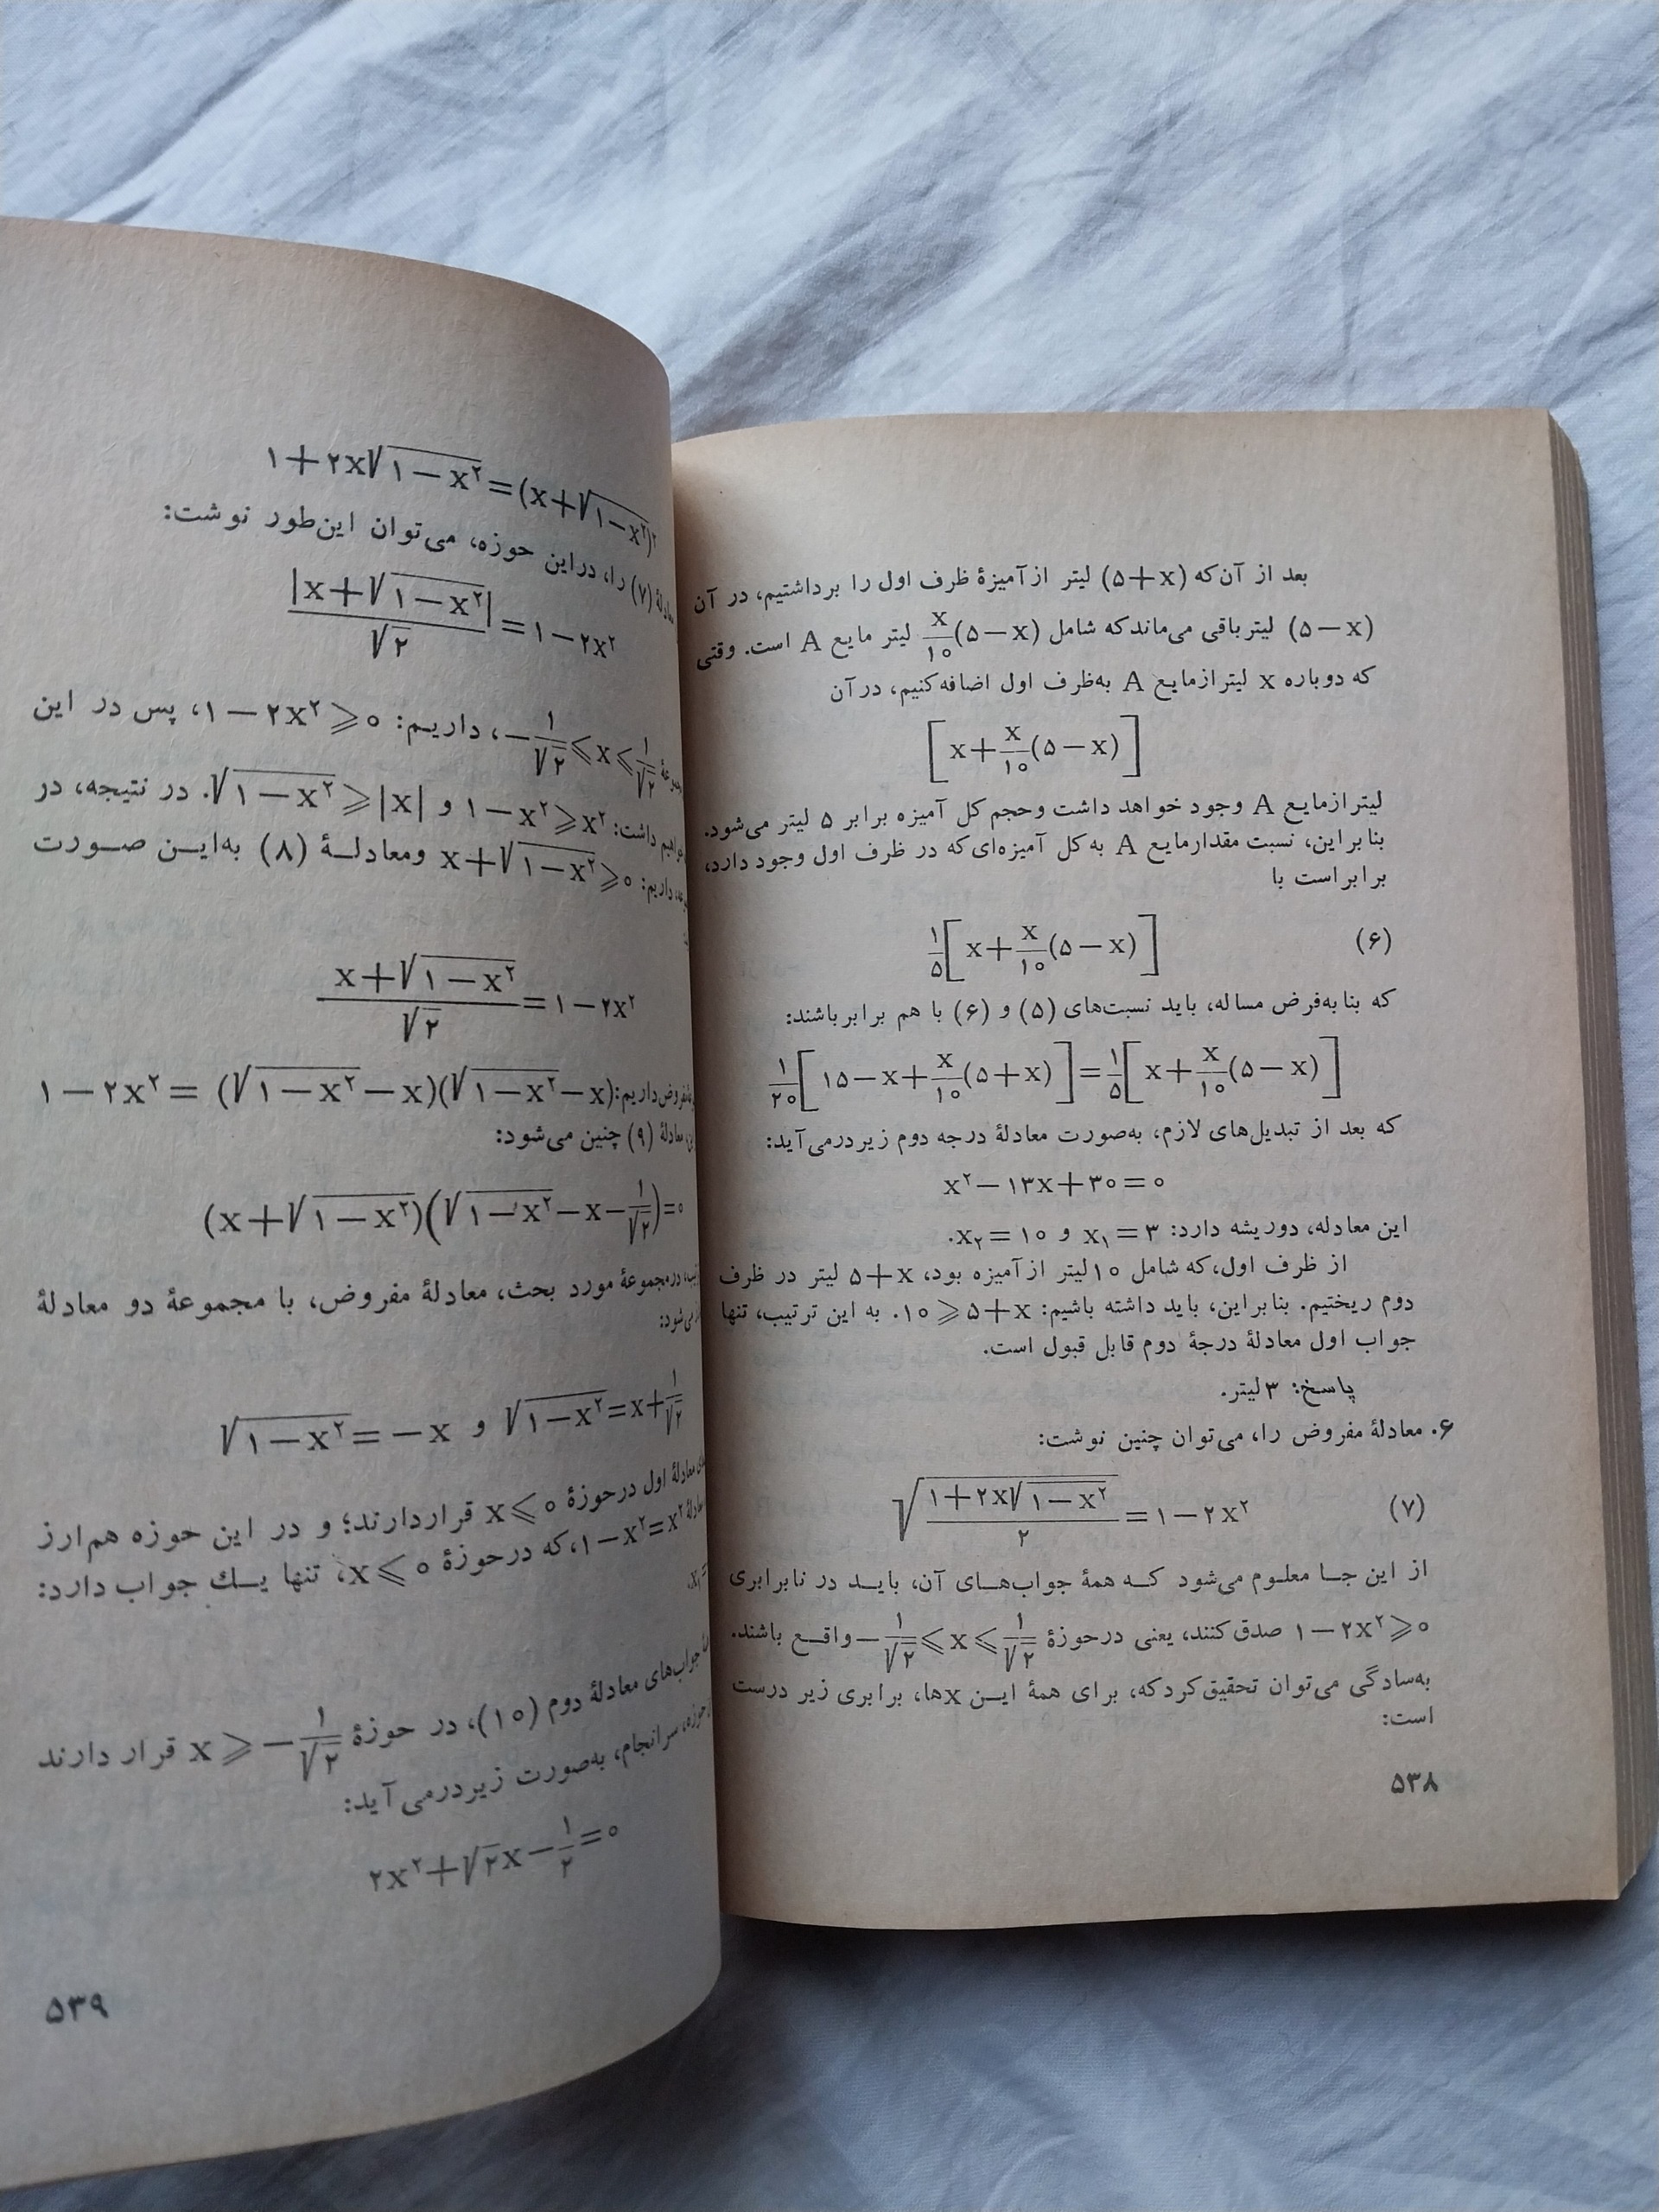 بعد از آن‌که (۵+x) لیتر از آمیزهٔ ظرف اول را برداشتیم، در آن
(۵−x) لیتر باقی می‌ماند که شامل x/۱۰(۵−x) لیتر مایع A است. وقتی
که دوباره x لیتر از مایع A به‌ظرف اول اضافه کنیم، در آن
[x+x/۱۰(۵−x)]
لیتر از مایع A وجود خواهد داشت و حجم کل آمیزه برابر ۵ لیتر می‌شود.
بنابراین، نسبت مقدار مایع A به کل آمیزه‌ای که در ظرف اول وجود دارد،
برابر است با
۱/۵[x+x/۱۰(۵−x)] (۶)
که بنا به فرض مساله، باید نسبت‌های (۵) و (۶) با هم برابر باشند:
۱/۲۰[۱۵−x+x/۱۰(۵+x)]=۱/۵[x+x/۱۰(۵−x)]
که بعد از تبدیل‌های لازم، به‌صورت معادلهٔ درجه دوم زیر درمی‌آید:
x²−۱۳x+۳۰=۰
این معادله، دو ریشه دارد: x₁=۳ و x₂=۱۰.
از ظرف اول، که شامل ۱۰ لیتر از آمیزه بود، ۵+x لیتر در ظرف
دوم ریختیم. بنابراین، باید داشته باشیم: ۱۰⩾۵+x. به این ترتیب، تنها
جواب اول معادلهٔ درجهٔ دوم قابل قبول است.
پاسخ: ۳ لیتر.
۶. معادلهٔ مفروض را، می‌توان چنین نوشت:
√((۱+۲x√(۱−x²))/۲)=۱−۲x² (۷)
از این جا معلوم می‌شود که همهٔ جواب‌های آن، باید در نابرابری
۱−۲x²⩾۰ صدق کنند، یعنی در حوزهٔ −۱/√۲⩽x⩽۱/√۲ واقع باشند.
به‌سادگی می‌توان تحقیق کرد که، برای همهٔ این xها، برابری زیر درست
است:
۵۳۸
۱+۲x√(۱−x²)=(x+√(۱−x²))²
(۷) را، در این حوزه، می‌توان این‌طور نوشت:
|x+√(۱−x²)|/√۲=۱−۲x²
−۱/√۲⩽x⩽۱/√۲، داریم: ۱−۲x²⩾۰، پس در این
داشت: ۱−x²⩾x² و √(۱−x²)⩾|x|. در نتیجه، در
داریم: x+√(۱−x²)⩾۰ و معادلهٔ (۸) به‌این صورت
(x+√(۱−x²))/√۲=۱−۲x²
داریم: ۱−۲x²=(√(۱−x²)−x)(√(۱−x²)−x)
معادلهٔ (۹) چنین می‌شود:
(x+√(۱−x²))(√(۱−x²)−x−۱/√۲)=۰
در مجموعهٔ مورد بحث، معادلهٔ مفروض، با مجموعهٔ دو معادلهٔ
می‌شود:
√(۱−x²)=x+۱/√۲ و √(۱−x²)=−x
معادلهٔ اول در حوزهٔ x⩽۰ قرار دارند؛ و در این حوزه هم‌ارز
۱−x²=x²، که در حوزهٔ x⩽۰، تنها یک جواب دارد:
جواب‌های معادلهٔ دوم (۱۰)، در حوزهٔ x⩾−۱/√۲ قرار دارند
حوزه، سرانجام، به‌صورت زیر درمی‌آید:
۲x²+√۲x−۱/۲=۰
۵۳۹